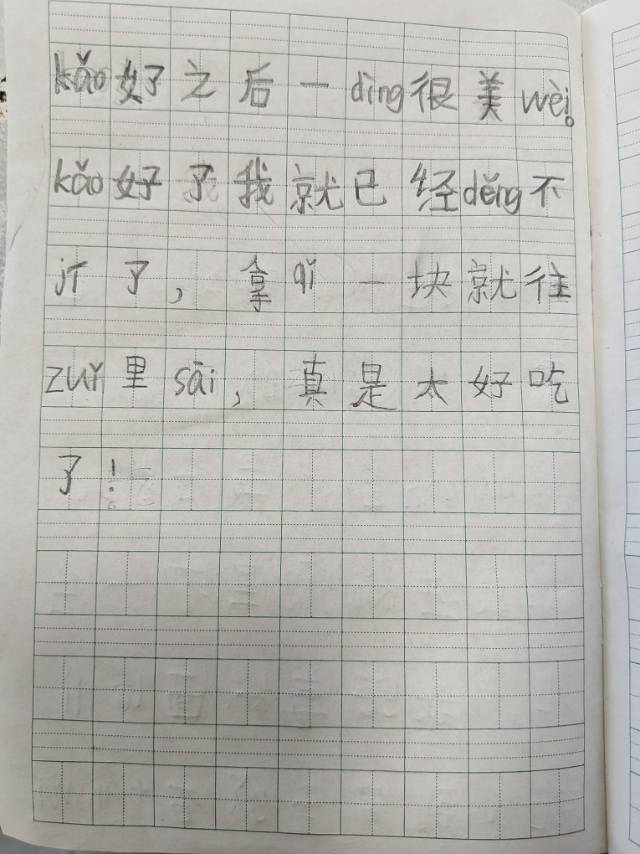 kǎo好之后一dìng很美wèi。
kǎo好了我就已经děng不
jí了，拿qǐ一块就往
zuǐ里sāi，真是太好吃
了！